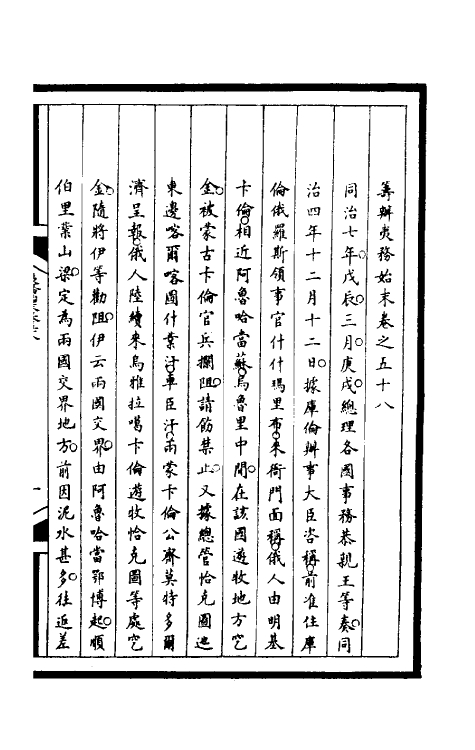 籌辦夷務始末卷之五十八
同治七年戊辰三月庚戌總理各國事務恭親王等奏同
治四年十二月十二日據庫倫辦事大臣咨稱前准住庫
倫俄羅斯領事官什什瑪里布來衙門面稱俄人由明基
卡倫相近阿魯哈當蘇烏魯里中間在該國遊牧地方空
金被蒙古卡倫官兵攔阻請飭禁止又據總管恰克圖迤
東邊喀爾喀圖什業汗車臣汗兩蒙卡倫公齊莫特多爾
濟呈報俄人陸續來烏雅拉噶卡倫遊牧恰克圖等處空
金隨將伊等勸阻伊云兩國交界由阿魯哈當鄂博起順
伯里葉山梁定為兩國交界地方前因泥水甚多往返差